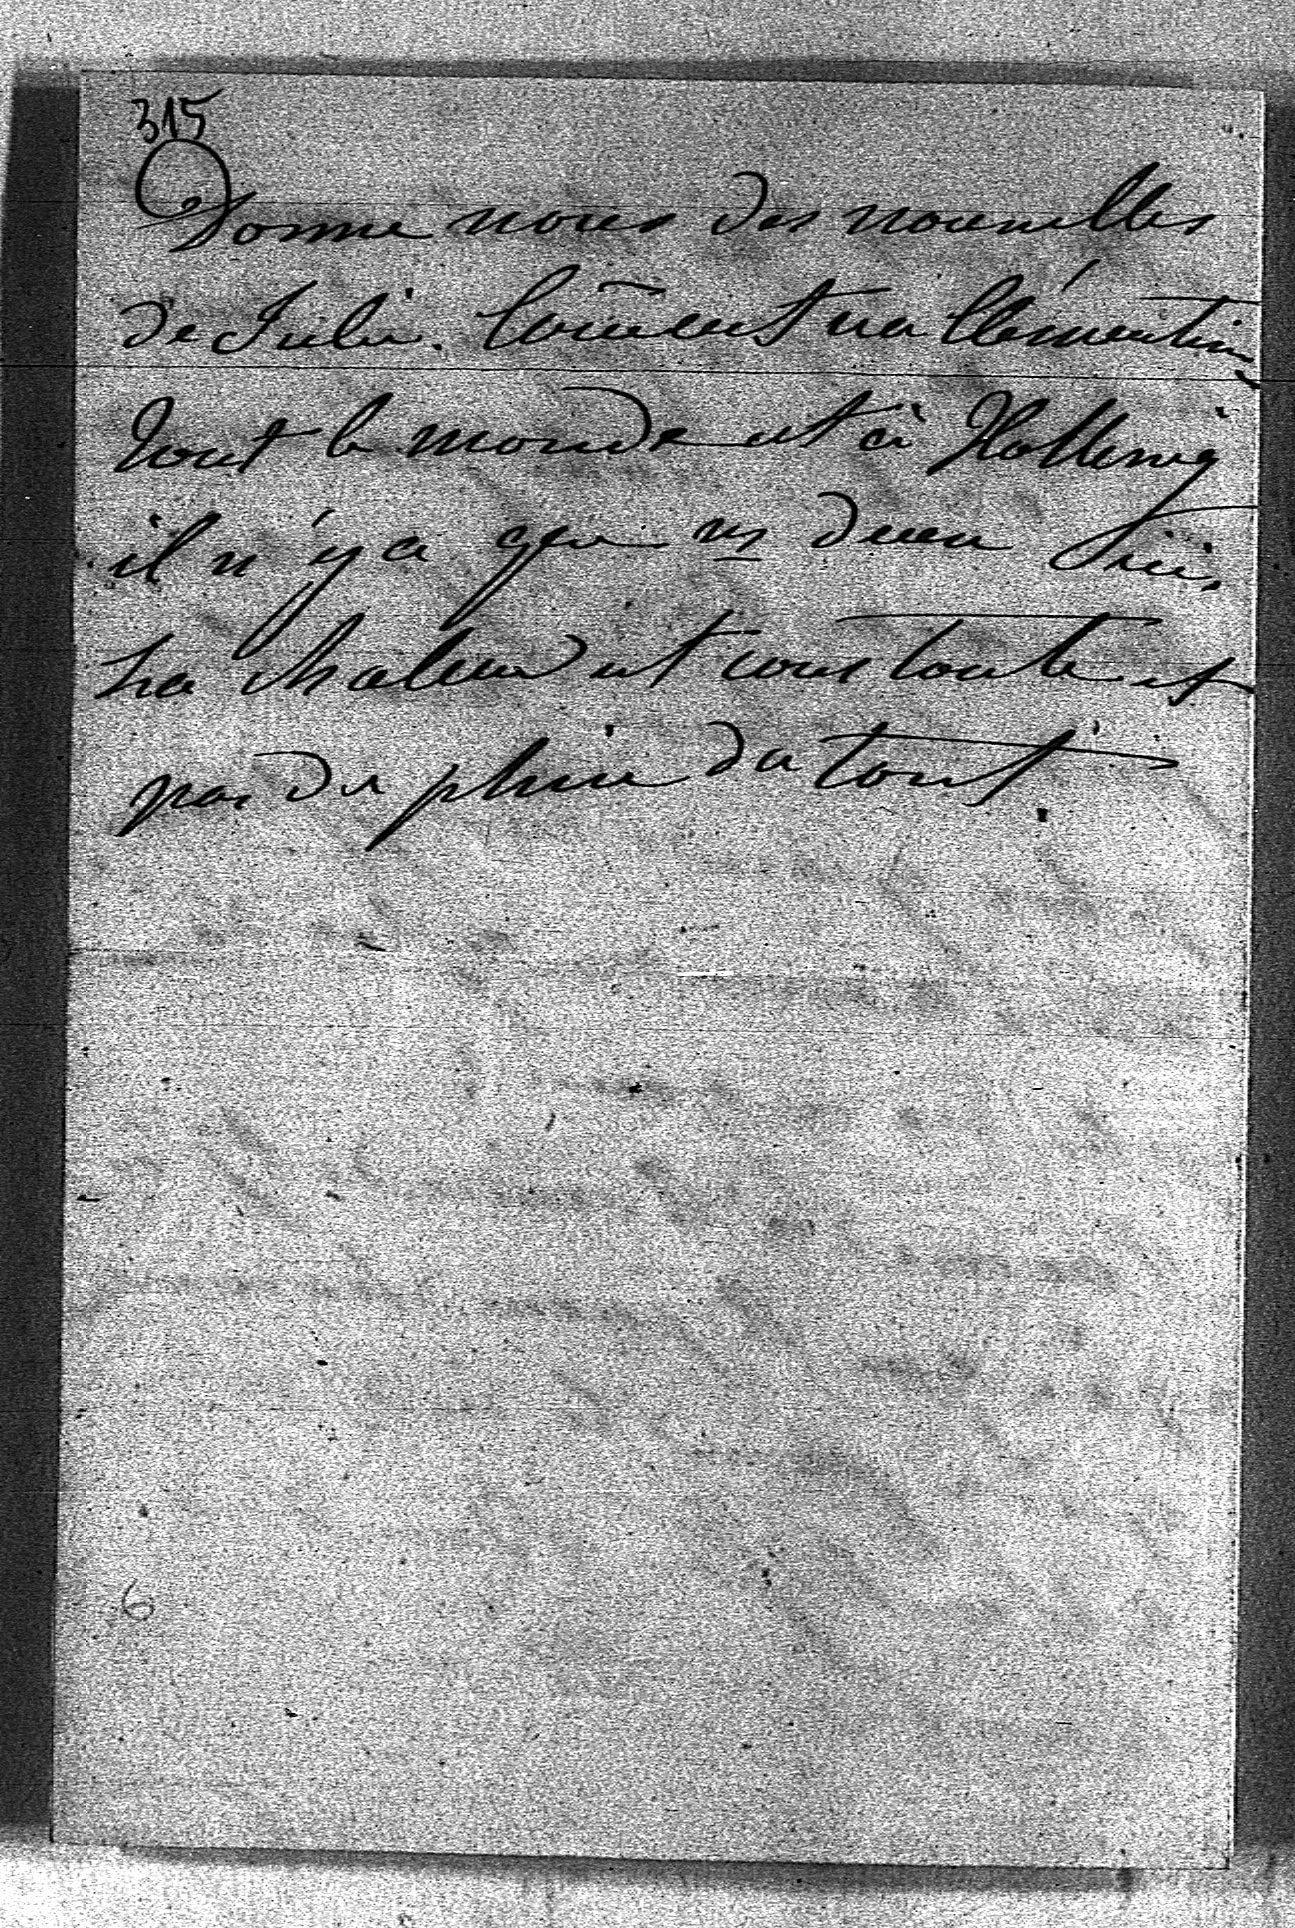 315
Donne nous des nouvelles
de Julie. Com̄ent va Clémentine
Tout le monde est à
il n'y a que ns deux ici,
La chaleur est constante et
pas de pluie du tout.
6